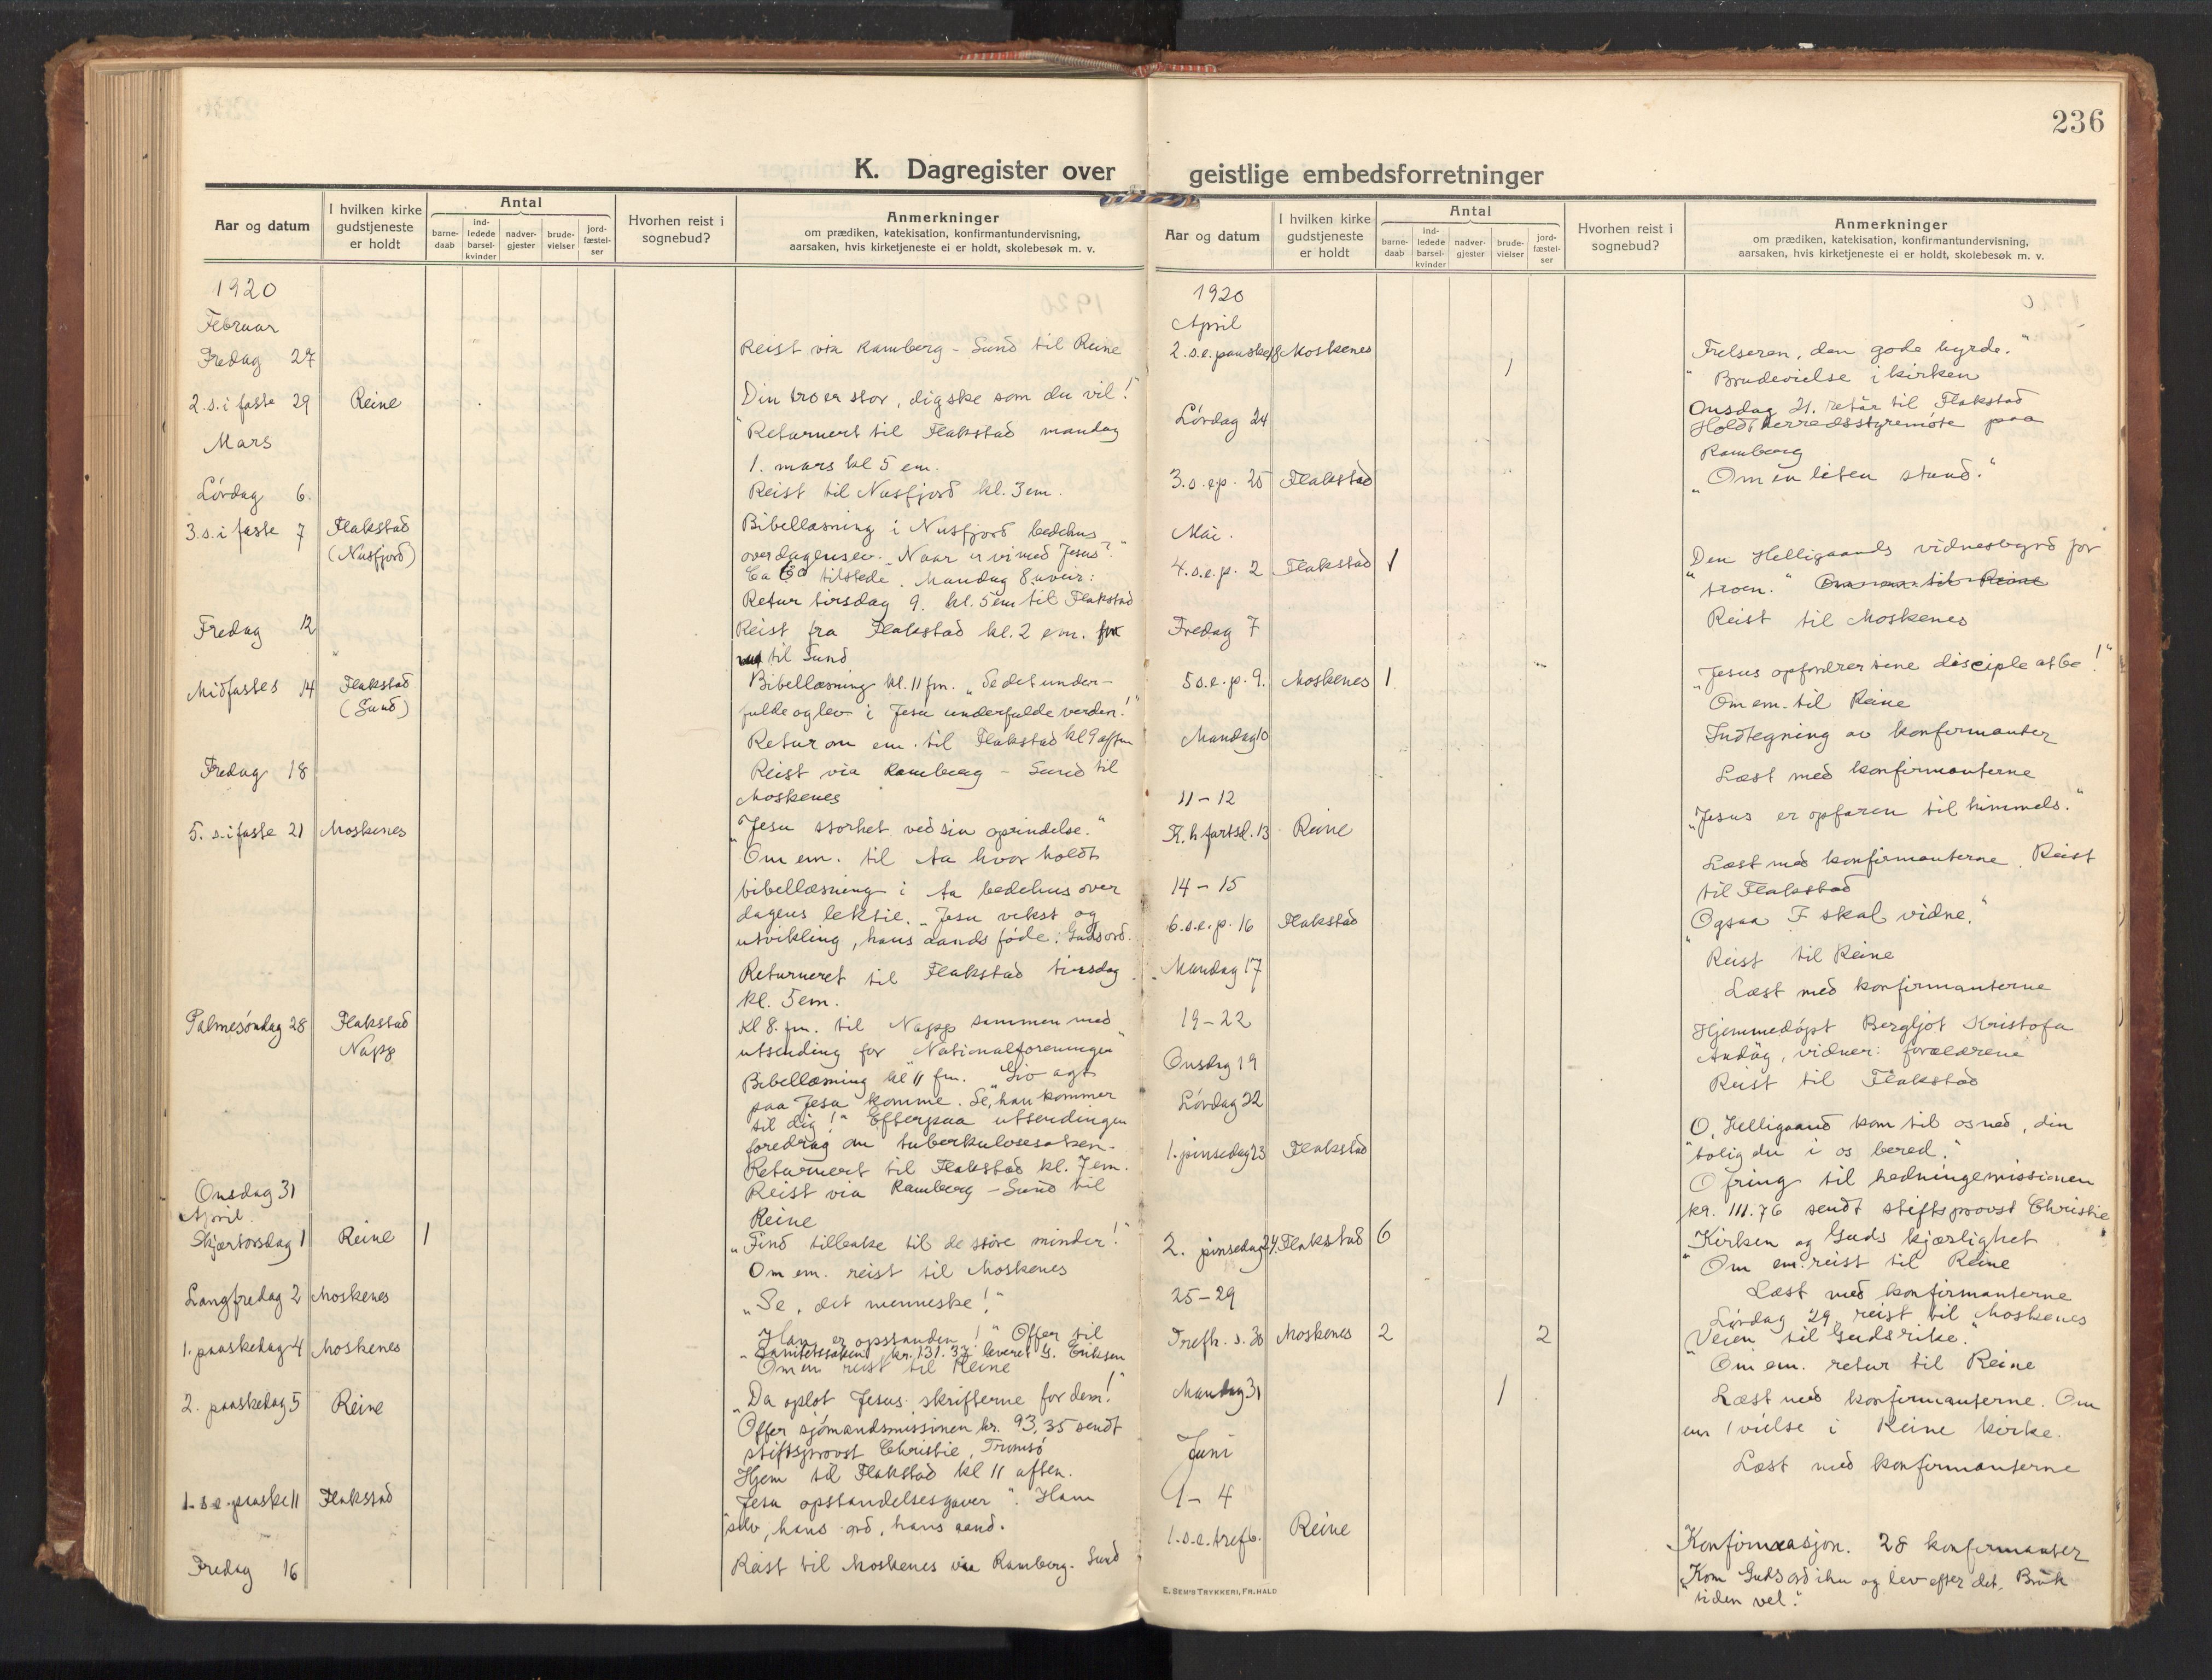 236
K. Dagregister over
Aar og datum
I hvilken kirke gudstjeneste er holdt
Antal
barne-daab
ind-ledede barsel-kvinder
nadver-gjester
brude-vielser
jord-fæstel-ser
Hvorhen reist i sognebud?
Anmerkninger
om prædiken, katekisation, konfirmantundervisning,
aarsaken, hvis kirketjeneste ei er holdt, skolebesøk m. v.
1920
Februar
Fredag 27 Reist via Ramberg - Sund til Reine
2. s. i faste 29 Reine „Din tro er stor, dig ske som du vil!"
Mars Returnert til Flakstad mandag
1. mars kl 5 em.
Lørdag 6. Reist til Nusfjord kl. 3 em.
3. s. i faste 7 Flakstad Bibellæsning i Nusfjord bedehus
(Nusfjord) over dagens ev. „Naar er vi med Jesus?"
Ca 60 tilstede. Mandag 8. uveir:
Retur tirsdag 9. kl. 5 em til Flakstad
Fredag 12 Reist fra Flakstad kl. 2 em.
til Sund
Midfastes 14 Flakstad Bibellæsning kl. 11 fm. „Se det under-
(Sund) fulde og lev i Jesu underfulde verden!"
Retur om em. til Flakstad kl 9 aften
Fredag 18 Reist via Ramberg - Sund til
Moskenes
5. s. i faste 21 Moskenes „Jesu storhet ved sin oprindelse."
Om em. til Aa hvor holdt
bibellæsning i Aa bedehus over
dagens lektie. „Jesu vekst og
utvikling, hans aands føde: Guds ord.
Returneret til Flakstad tirsdag
kl. 5 em.
Palmesøndag 28 Flakstad Kl 8. fm. til Napp sammen med
Napp utsending for „Nationalforeningen"
Bibellæsning kl 11 fm. „Giv agt
paa Jesu komme. Se, han kommer
til dig!" Efterpaa utsendingen
foredrag om tuberkulosesaken.
Returnert til Flakstad kl. 7 em.
Onsdag 31 Reist via Ramberg - Sund til
April. Reine
Skjærtorsdag 1 Reine 1 „Find tilbake til de store minder!"
Om em. reist til Moskenes
Langfredag 2 Moskenes „Se, det menneske!"
1. paaskedag 4 Moskenes „Han er opstanden!" Offer til
Sanitetssaken kr. 131.37 leveret G. Eriksen
Om em reist til Reine
2. paaskedag 5 Reine „Da oplot Jesus skrifterne for dem!"
Offer sjømandsmissionen kr. 93,35 sendt
stiftsprovst Christie, Tromsø
Hjem til Flakstad kl 11 aften.
1. s. e. paaske 11 Flakstad „Jesu opstandelsesgaver". Ham
selv, hans ord, hans aand.
Fredag 16 Reist til Moskenes via Ramberg - Sund
geistlige embedsforretninger
Aar og datum
I hvilken kirke gudstjeneste er holdt
Antal
barne-daab
ind-ledede barsel-kvinder
nadver-gjester
brude-vielser
jord-fæstel-ser
Hvorhen reist i sognebud?
Anmerkninger
om prædiken, katekisation, konfirmantundervisning,
aarsaken, hvis kirketjeneste ei er holdt, skolebesøk m. v.
1920
April
2. s. e. paaske 18 Moskenes 1 „Frelseren, den gode hyrde."
Brudevielse i kirken
Onsdag 21. retur til Flakstad
Lørdag 24 Holdt herredsstyremøte paa
Ramberg
3. s. e. p. 25 Flakstad „Om en liten stund."
Mai.
4. s. e. p. 2 Flakstad 1 „Den Helligaands vidnesbyrd for
troen." Om em til Reine
Fredag 7 Reist til Moskenes
5 s. e. p. 9. Moskenes 1 „Jesus opfordrer sine disciple at be!"
Om em. til Reine
Mandag 10 Indtegning av konfirmanter
11 - 12 Læst med konfirmanterne
K. h. fartsd. 13 Reine „Jesus er opfaren til himmels."
14 - 15 Læst med konfirmanterne. Reist
til Flakstad
6. s. e. p. 16 Flakstad „Ogsaa I skal vidne."
Mandag 17 Reist til Reine
19 - 22 Læst med konfirmanterne
Onsdag 19 Hjemmedøpt Bergljot Kristofa
Andåg, vidner: forældrene
Lørdag 22 Reist til Flakstad
1. pinsedag 23 Flakstad „O, Helligaand kom til os ned, din
bolig du i os bered."
Ofring til hedningemissionen
kr. 111.76 sendt stiftsprovst Christie
2. pinsedag 24. Flakstad 6 „Kirken og Guds kjærlighet
Om em. reist til Reine
25 - 29 Læst med konfirmanterne
Lørdag 29 reist til Moskenes
Trefh. s. 30 Moskenes 2 2 „Veien til Guds rike."
Om em. retur til Reine
Mandag 31 1 Læst med konfirmanterne. Om
em 1 vielse i Reine kirke.
Juni
1 - 4 Læst med konfirmanterne
1. s. e. trefh. Reine Konfirmasjon. 28 konfirmanter
„Kom Guds ord ihu og lev efter det. Bruk
tiden vel."
E. SEM'S TRYKKERI, FR.HALD